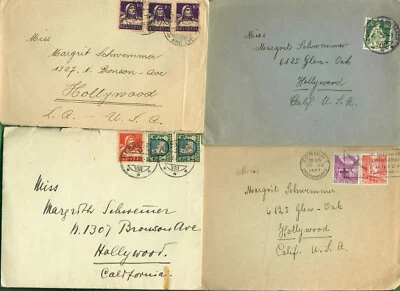 Miss
Margrit Schwemmer
1307. N. Bronson-Ave
Hollywood
L.A. - U.S.A.
Miss
Margrit Schwemmer
6125 Glen-Oak
Hollywood
Calif U.S.A.
Miss
Margrith Schweimer
N. 1307 Bronson Ave
Hollywood.
California.
Miss
Margrit Schwemmer
6125 Glen-Oak
Hollywood
Calif. U.S.A.